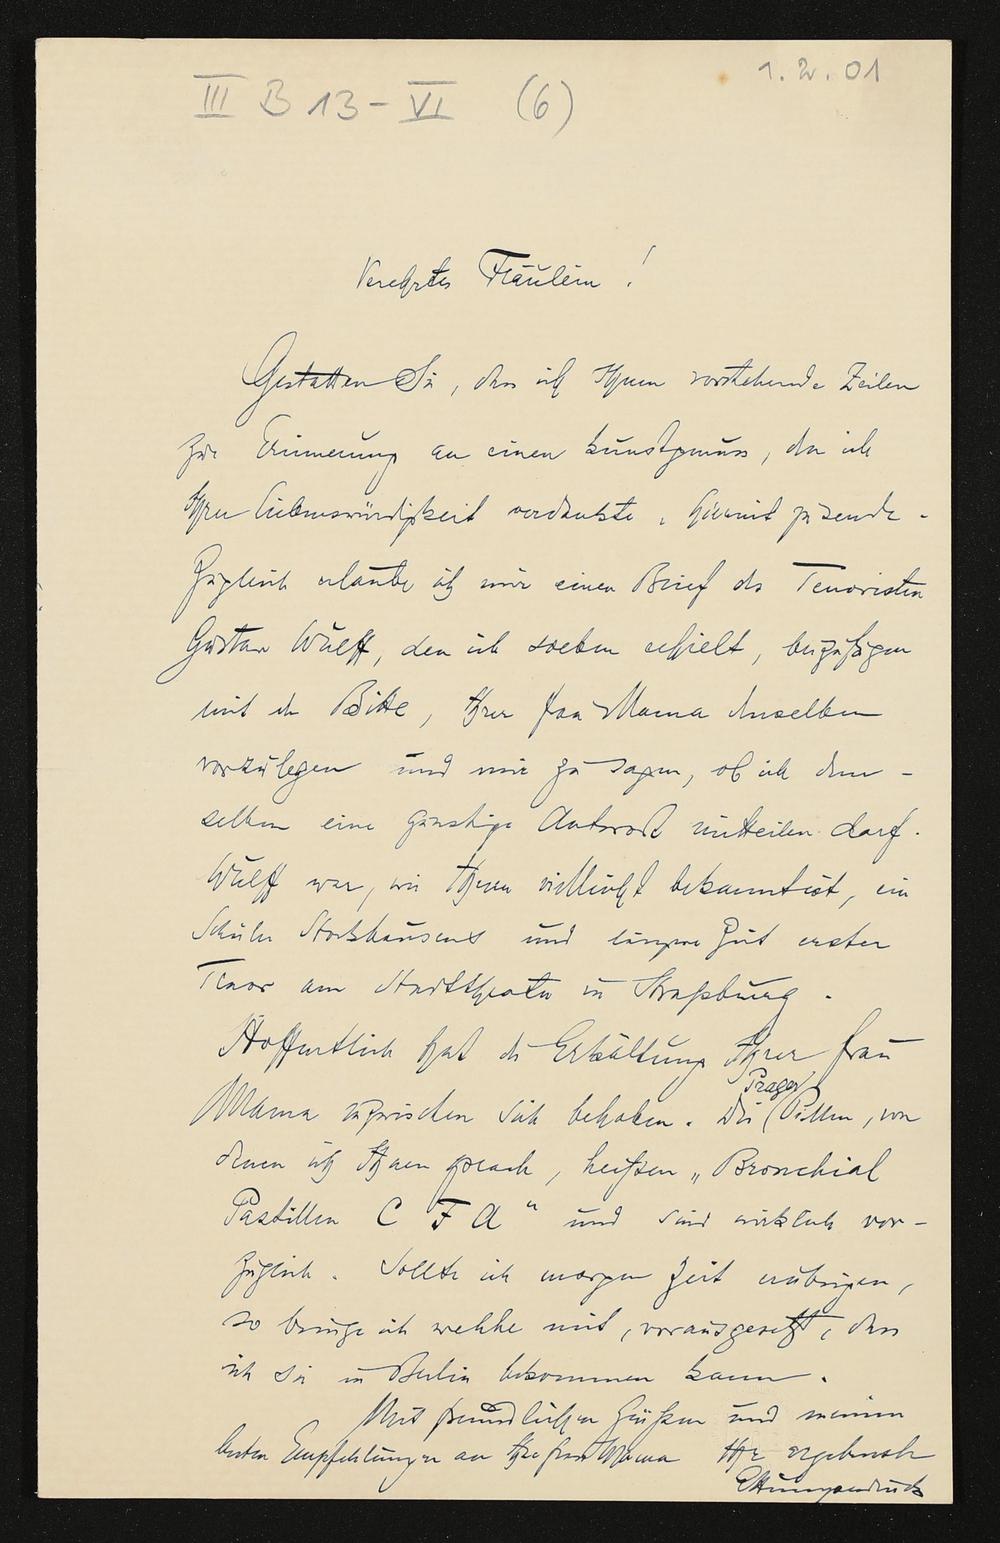 III B 13 - VI (6)
1. 2. 01
Verehrtes Fräulein!
Gestatten Sie, dass ich Ihnen vorstehende Zeilen
zur Erinnerung an einen Kunstgenuss, den ich
Ihrer Liebenswürdigkeit verdankte, hiermit zusende.
Zugleich erlaube ich mir einen Brief des Tenoristen
Gustav Wulff, den ich soeben erhielt, beizufügen
mit der Bitte, Ihrer Frau Mama denselben
vorzulegen und mir zu sagen, ob ich dem-
selben eine günstige Antwort mitteilen darf.
Wulff war, wie Ihnen vielleicht bekannt ist, ein
Schüler Stockhausens und längere Zeit erster
Tenor am Stadttheater in Straßburg.
Hoffentlich hat die Erkältung Ihrer Frau
Mama inzwischen sich behoben. Die (Prager) Pillen, von
denen ich Ihnen sprach, heißen „Bronchial
Pastillen C F A" und sind wirklich vor-
züglich. Sollte ich morgen Zeit erübrigen,
so bringe ich welche mit, vorausgesetzt, dass
ich sie in Berlin bekommen kann.
Mit freundlichen Grüßen und meinen
besten Empfehlungen an Ihre Frau Mama Ihr ergebenster
EHumperdinck